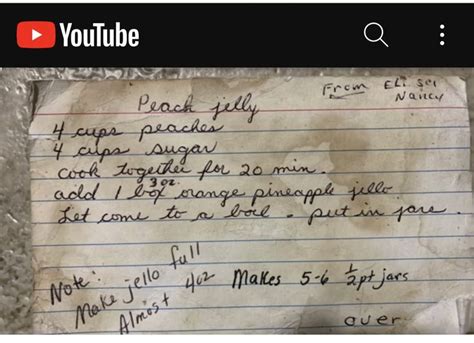 YouTube
From Eli sei
Nancy
Peach jelly
4 cups peaches
4 cups sugar
cook together for 20 min.
3 oz.
add 1 box orange pineapple jello
Let come to a boil - put in jars.
Note:
Make jello full
Almost 4oz
Makes 5-6 1/2 pt jars
over